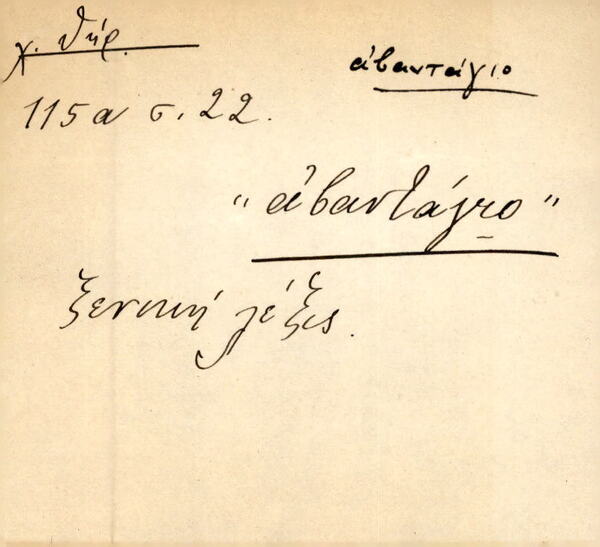 χ. Θήρ.
ἀβαντάγιο
115α σ. 22.
"ἀβαντάγιο"
ξενική λέξις.